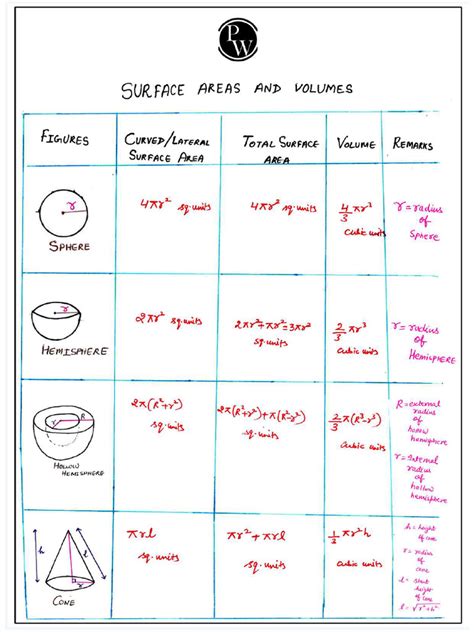 P
W
SURFACE AREAS AND VOLUMES
FIGURES
CURVED/LATERAL
SURFACE AREA
TOTAL SURFACE
AREA
VOLUME
REMARKS
r
SPHERE
4πr² sq.units
4πr² sq.units
4/3 πr³
cubic units
r = radius
of
Sphere
r
HEMISPHERE
2πr²
sq.units
2πr²+πr²=3πr²
sq.units
2/3 πr³
cubic units
r = radius
of
Hemisphere
r R
HOLLOW
HEMISPHERE
2π(R²+r²)
sq.units
2π(R²+r²)+π(R²-r²)
sq.units
2/3 π(R³-r³)
cubic units
R = external
radius
of
hollow
hemisphere
r = Internal
radius
of
hollow
hemisphere
h l
r
CONE
πrl
sq.units
πr²+πrl
sq.units
1/3 πr²h
cubic units
h = height
of cone
r = radius
of
cone
l = slant
height
of cone
l = √r²+h²